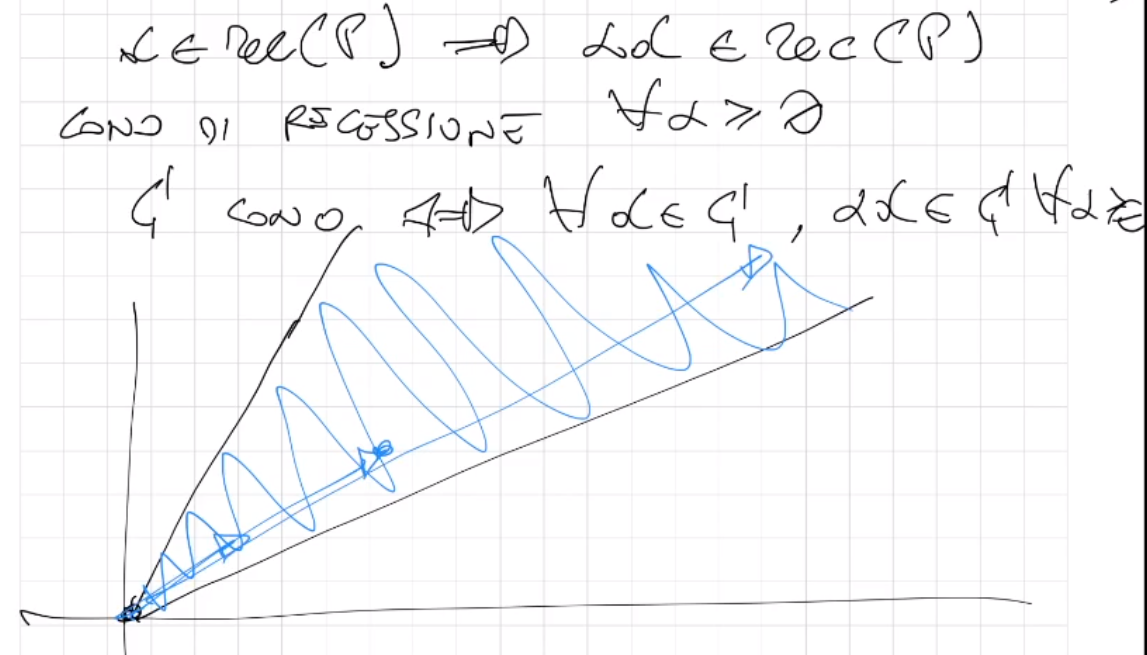 x ∈ rec(P) ⟹ αx ∈ rec(P)
CONO DI RECESSIONE ∀α ≥ 0
C cono ⟺ ∀x ∈ C, αx ∈ C ∀α ≥ 0